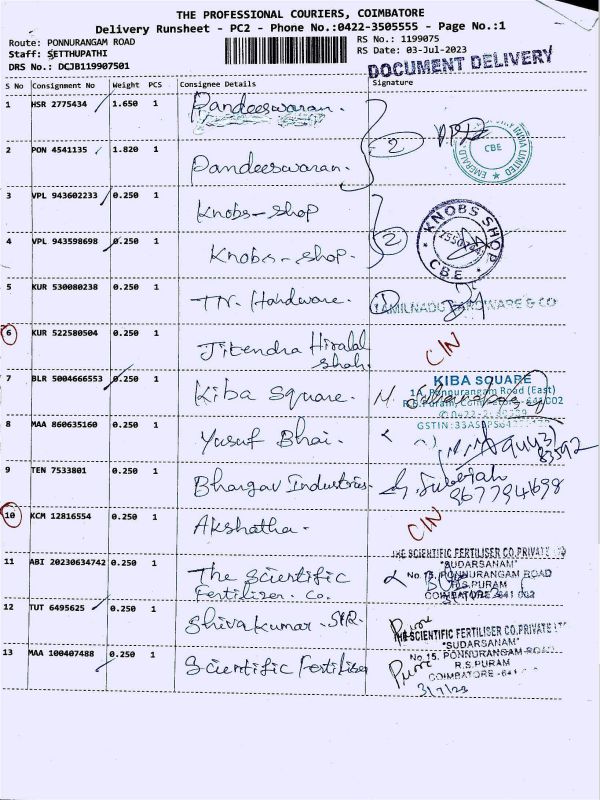 THE PROFESSIONAL COURIERS, COIMBATORE
Delivery Runsheet - PC2 - Phone No.:0422-3505555 - Page No.:1
Route: PONNURANGAM ROAD
RS No.: 1199075
Staff: SETTHUPATHI
RS Date: 03-Jul-2023
DRS No.: DCJB119907501
DOCUMENT DELIVERY
S No Consignment No Weight PCS Consignee Details Signature
1 HSR 2775434 1.650 1 Pandeeswaran.
2 PON 4541135 1.820 1 Pandeeswaran. 2
EMERALD LIMITED
CBE
3 VPL 943602233 0.250 1 Knobs-shop
4 VPL 943598698 0.250 1 Knobs-shop. 2
KNOBS SHOP
CBE
5 KUR 530080238 0.250 1 TN. Hardware. 1 TAMILNADU HARDWARE & CO
6 KUR 522580504 0.250 1 Jitendra Hiralal
Shah. CIN
7 BLR 5004666553 0.250 1 Kiba Square.
KIBA SQUARE
1A, Ponnurangam Road (East)
R.S.Puram, 641002
8 MAA 860635160 0.250 1 Yusuf Bhai.
9 TEN 7533801 0.250 1 Bhargav Industries.
9677941698
10 KCM 12816554 0.250 1 Akshatha. CIN
11 ABI 20230634742 0.250 1 The Scientific
Fertilizer. Co.
THE SCIENTIFIC FERTILISER CO.PRIVATE
"SUDARSANAM"
No.15, PONNURANGAM ROAD
R.S.PURAM
COIMBATORE-641 002
12 TUT 6495625 0.250 1 Shivakumar. S.R.
13 MAA 100407488 0.250 1 Scientific Fertiliser
THE SCIENTIFIC FERTILISER CO.PRIVATE
"SUDARSANAM"
No.15, PONNURANGAM ROAD
R.S.PURAM
COIMBATORE-641
3/7/23